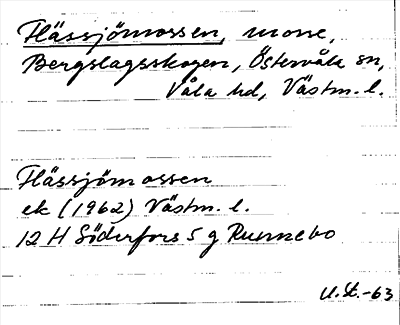 Flässjömossen, mosse,
Bergslagsskogen, Östervåla sn,
Våla hd, Västm. l.
Flässjömossen
ek (1962) Västm. l.
12 H Söderfors 5 g Runnebo
U.St.-63